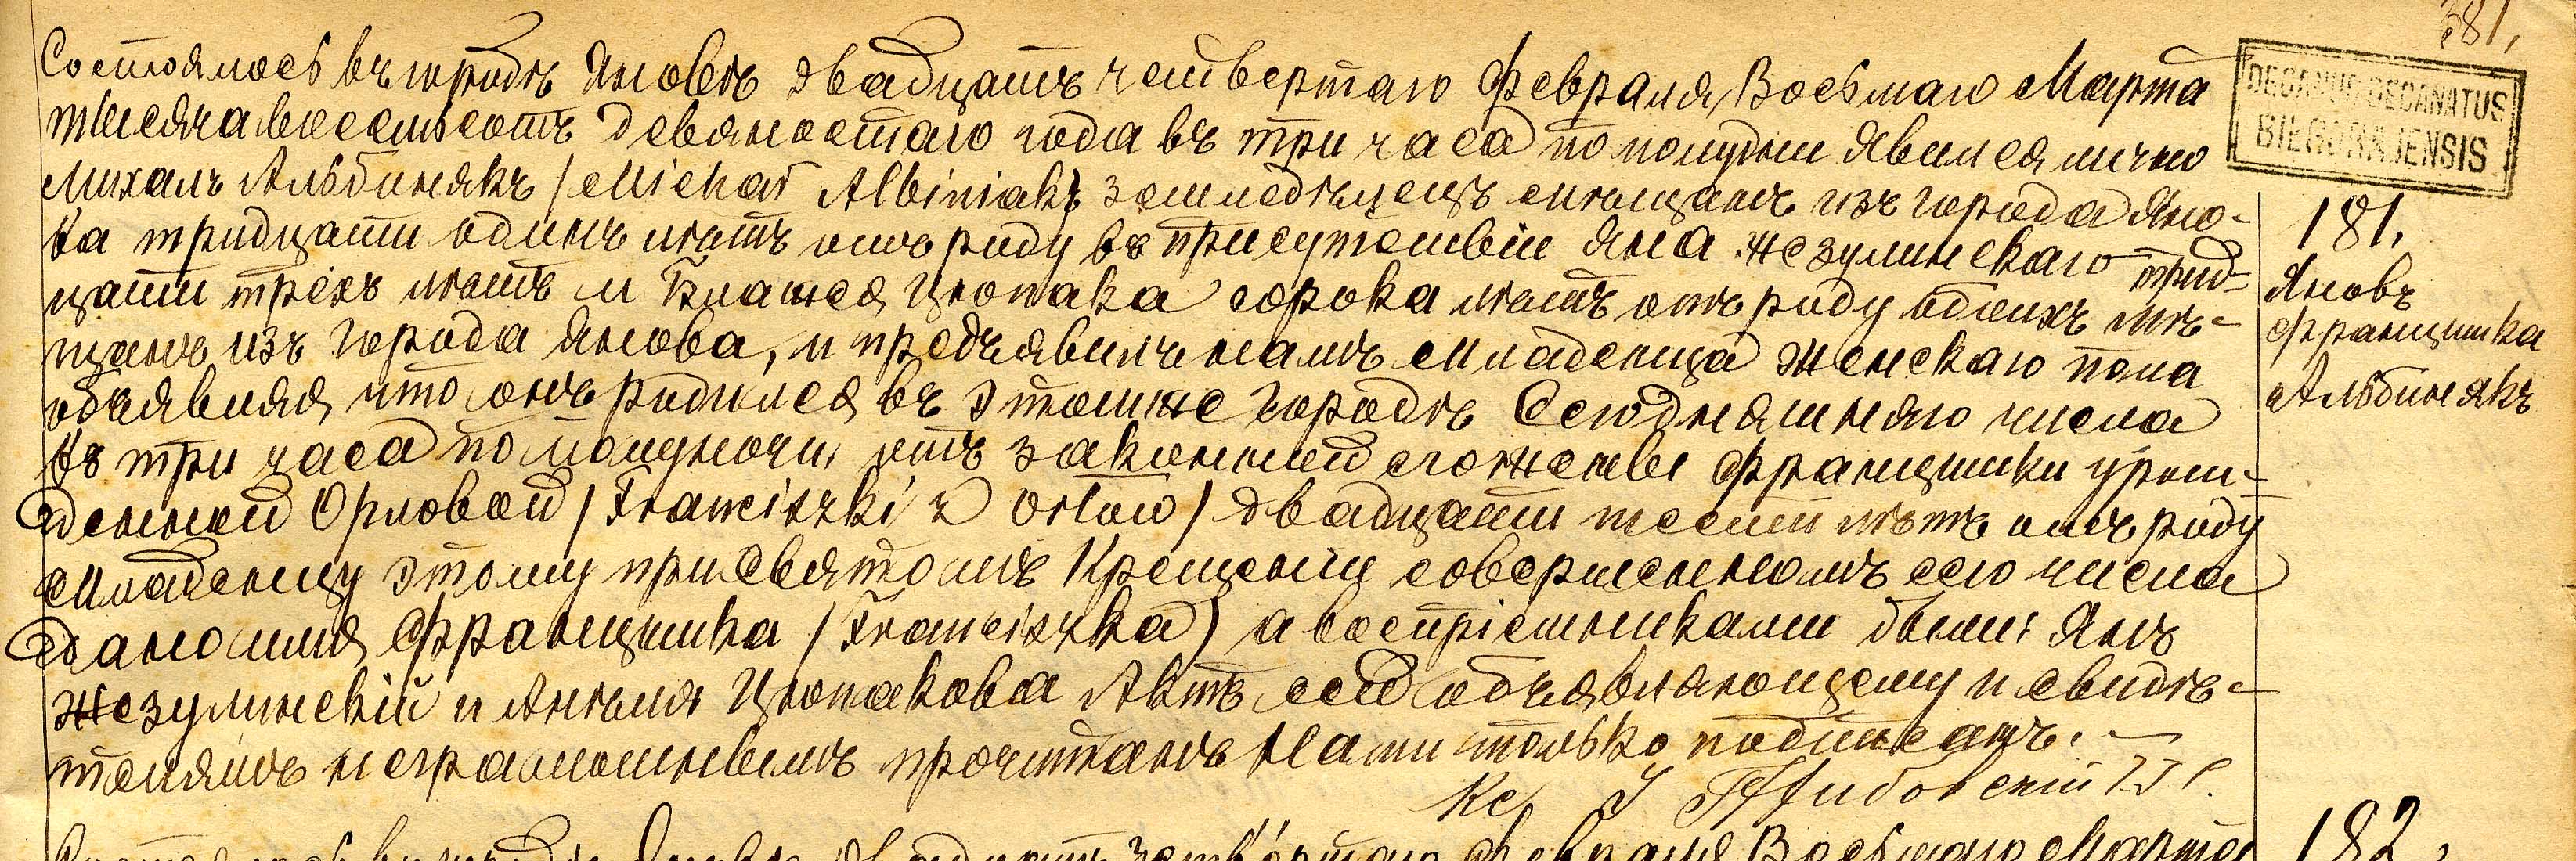 381,
DECANUS DECANATUS
BIŁGORAJENSIS
181.
Яновъ
Францишка
Альбинякъ
Состоялось въ городѣ Яновѣ двадцать четвертаго Февраля, Восьмаго Марта
тысяча восемьсотъ девяностаго года въ три часа по полудни явился лично
Михалъ Альбинякъ /Michał Albiniak/ земледѣлецъ мѣщанъ изъ города Яно-
ва тридцати одинъ лѣтъ отъ роду въ присутствіи Яна Жезулинскаго трид-
цати трехъ лѣтъ и Блажея Цюпака сорока лѣтъ отъ роду обоихъ мѣ-
щанъ изъ города Янова, и предъявилъ намъ младенца женскаго пола
объявляя что онъ родился въ этомже городѣ Сегодняшняго числа
въ три часа по полуночи отъ законной его жены Францишки урож-
денной Орловой /Franciszki z Orłów/ двадцати шести лѣтъ отъ роду
Младенцу этому при Святомъ Крещеніи совершенномъ сего числа
дано имя Францишка /Franciszka/ а воспріемниками были: Янъ
Жезулинскій и Анѣля Цюпакова Актъ сей объявляющему и свидѣ-
телямъ неграмотнымъ прочитанъ Нами только подписанъ.
Кс.
182.
двадцать четвертаго Февраля Восьмаго Марта